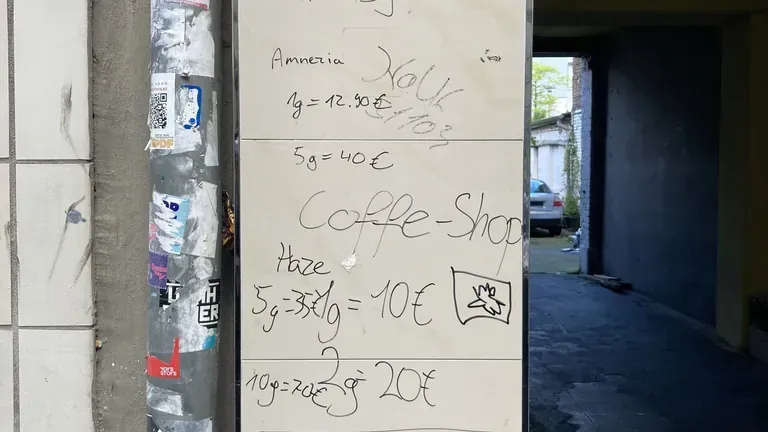 Amnezia
1g = 12.90€
5g = 40€
Coffe-Shop
Haze
5g = 35€
1g = 10€
10g = 70€
2g = 20€